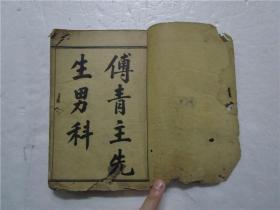 傅青主先
生男科